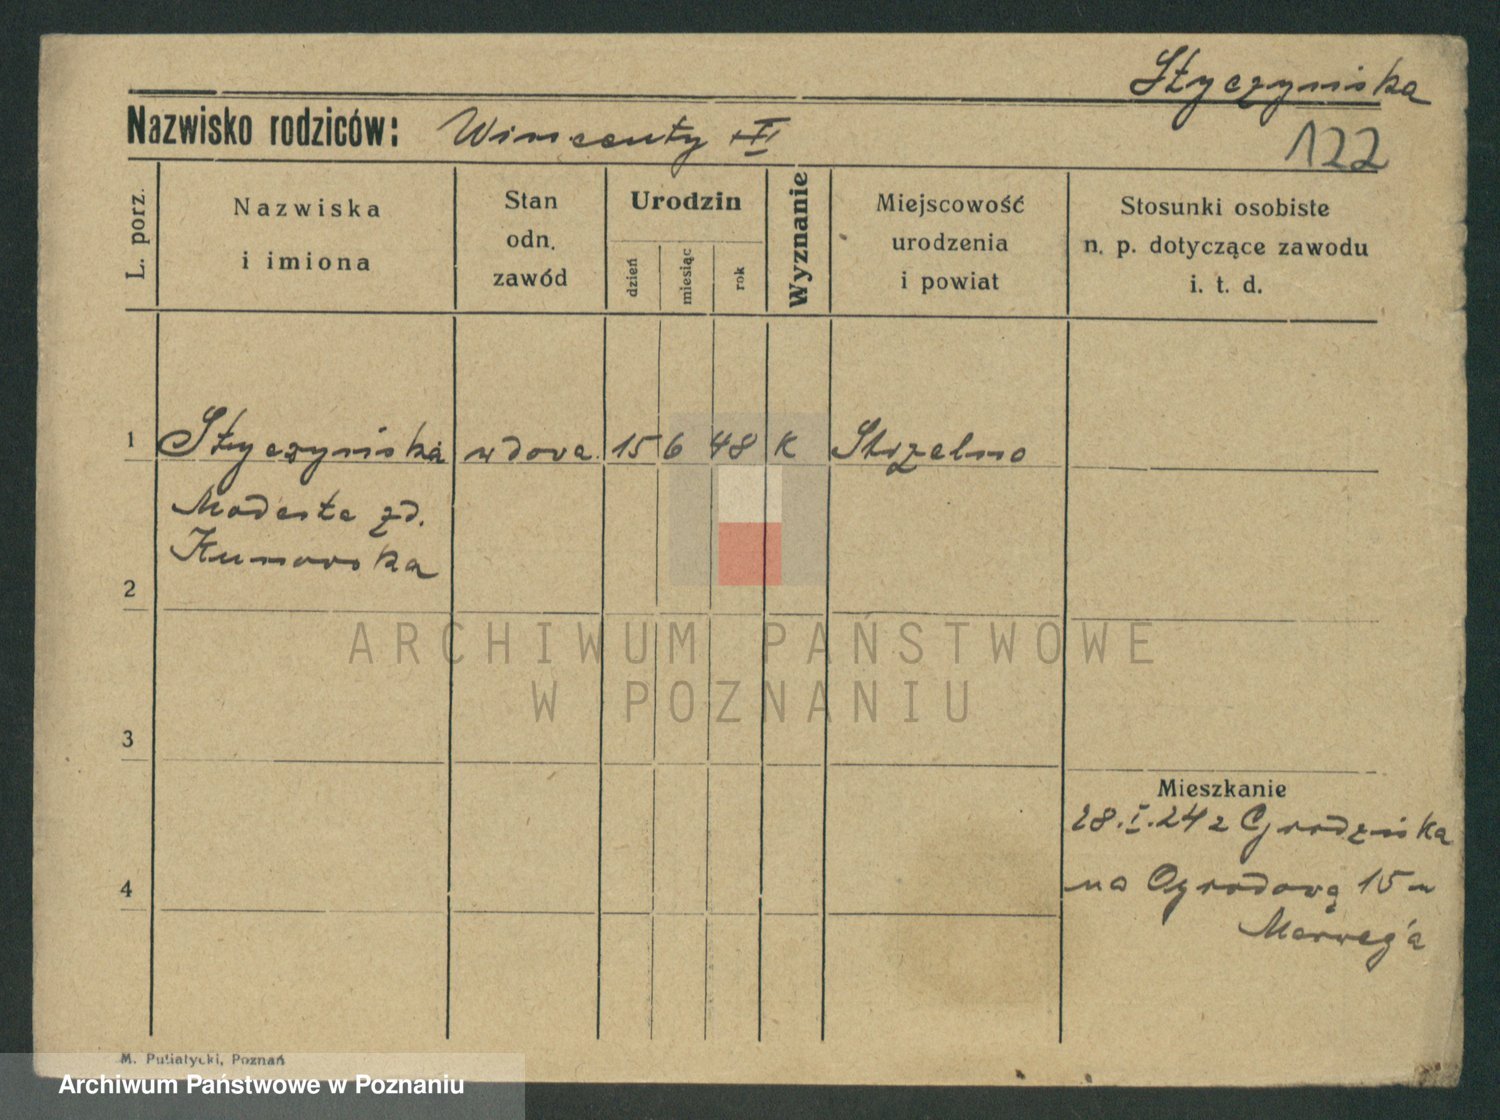 Styczyńska
Nazwisko rodziców: Wincenty
122
L. porz.
Nazwiska
i imiona
Stan
odn.
zawód
Urodzin
dzień
miesiąc
rok
Wyznanie
Miejscowość
urodzenia
i powiat
Stosunki osobiste
n. p. dotyczące zawodu
i. t. d.
1 Styczyńska wdowa 15 6 48 K Strzelno
Modesta zd.
2
ARCHIWUM PAŃSTWOWE
W POZNANIU
3
Mieszkanie
28.I.24 z Grodziska
4
na Ogrodową 15 u
M. Putiatycki, Poznań
Archiwum Państwowe w Poznaniu